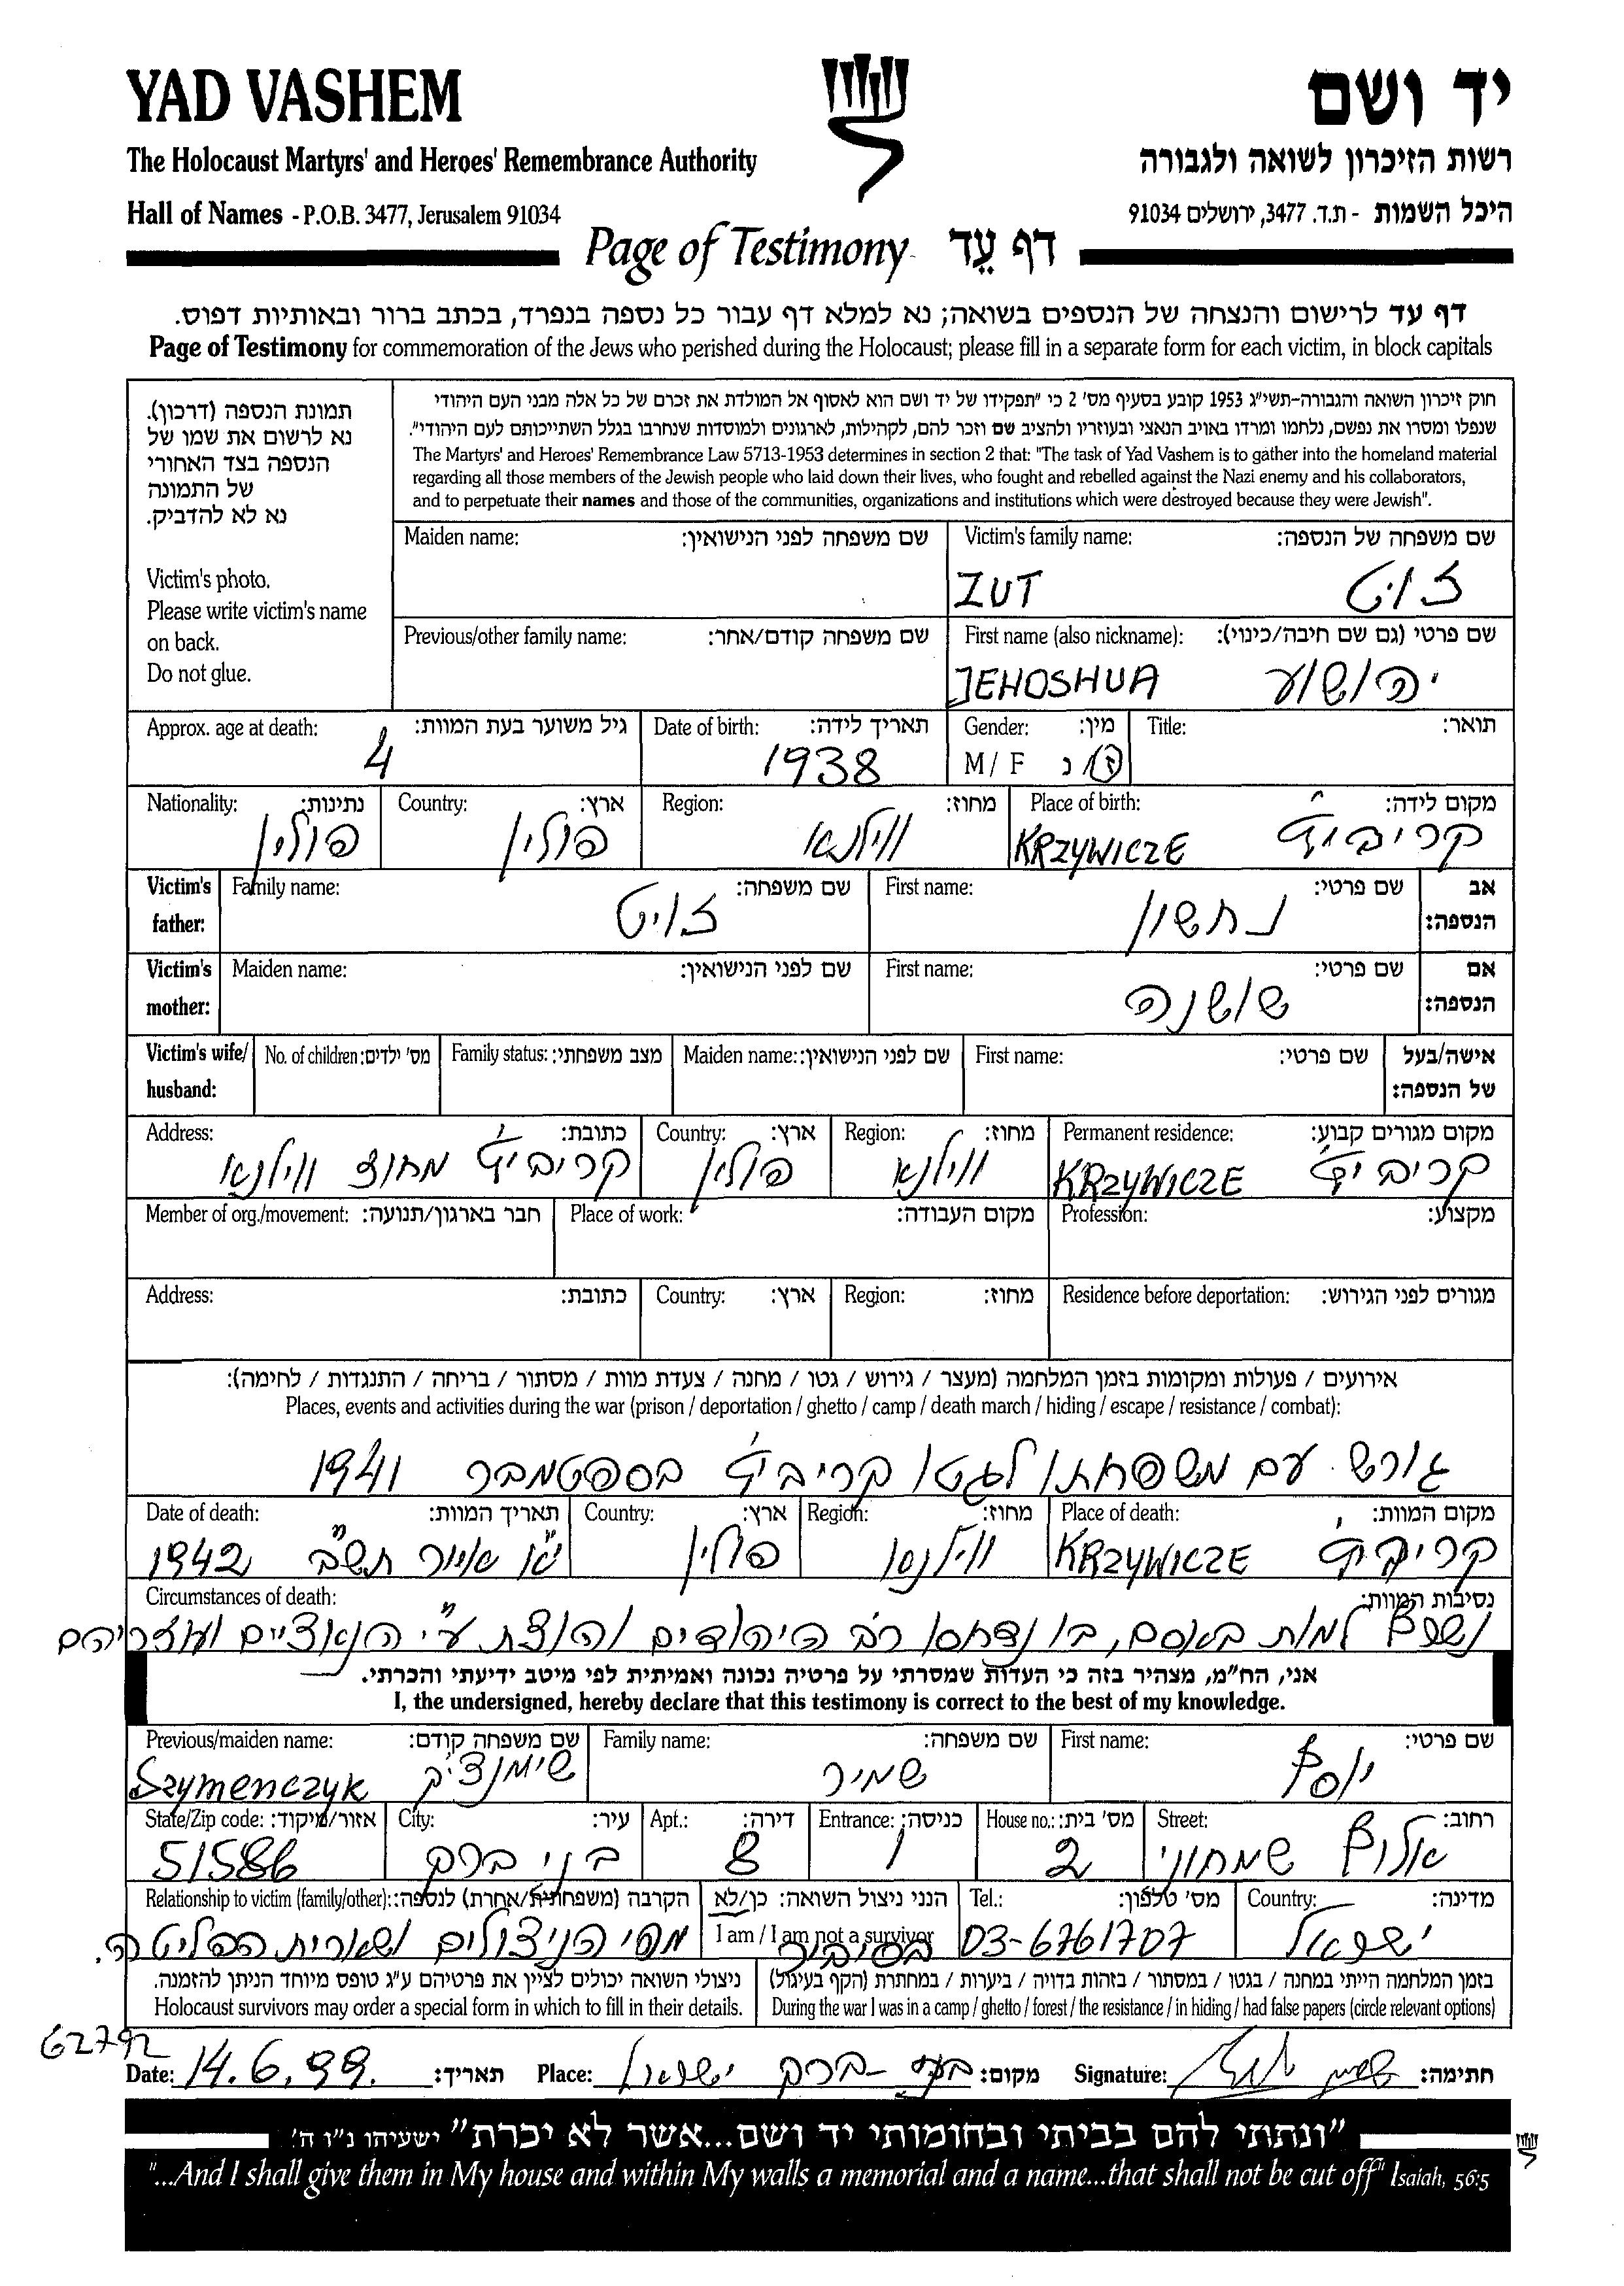 YAD VASHEM
יד ושם
The Holocaust Martyrs' and Heroes' Remembrance Authority
רשות הזיכרון לשואה ולגבורה
Hall of Names - P.O.B. 3477, Jerusalem 91034
היכל השמות - ת.ד. 3477, ירושלים 91034
Page of Testimony דף עֵד
דף עד לרישום והנצחה של הנספים בשואה; נא למלא דף עבור כל נספה בנפרד, בכתב ברור ובאותיות דפוס.
Page of Testimony for commemoration of the Jews who perished during the Holocaust; please fill in a separate form for each victim, in block capitals
תמונת הנספה (דרכון).
נא לרשום את שמו של
הנספה בצד האחורי
של התמונה
נא לא להדביק.
Victim's photo.
Please write victim's name
on back.
Do not glue.
חוק זיכרון השואה והגבורה-תשי"ג 1953 קובע בסעיף מס' 2 כי "תפקידו של יד ושם הוא לאסוף אל המולדת את זכרם של כל אלה מבני העם היהודי
שנפלו ומסרו את נפשם, נלחמו ומרדו באויב הנאצי ובעוזריו ולהציב שם וזכר להם, לקהילות, לארגונים ולמוסדות שנחרבו בגלל השתייכותם לעם היהודי".
The Martyrs' and Heroes' Remembrance Law 5713-1953 determines in section 2 that: "The task of Yad Vashem is to gather into the homeland material
regarding all those members of the Jewish people who laid down their lives, who fought and rebelled against the Nazi enemy and his collaborators,
and to perpetuate their names and those of the communities, organizations and institutions which were destroyed because they were Jewish".
Maiden name: שם משפחה לפני הנישואין: Victim's family name: שם משפחה של הנספה:
ZUT זויט
Previous/other family name: שם משפחה קודם/אחר: First name (also nickname): שם פרטי (גם שם חיבה/כינוי):
JEHOSHUA יהושע
Approx. age at death: גיל משוער בעת המוות: Date of birth: תאריך לידה: Gender: מין: Title: תואר:
4 1938 M / F ז/נ
Nationality: נתינות: Country: ארץ: Region: מחוז: Place of birth: מקום לידה:
פולין פולין ווילנא KRZYWICZE קריביץ'
Victim's father: Family name: שם משפחה: First name: שם פרטי: אב הנספה:
זויט נחשון
Victim's mother: Maiden name: שם לפני הנישואין: First name: שם פרטי: אם הנספה:
שושנה
Victim's wife/ husband: No. of children: מס' ילדים: Family status: מצב משפחתי: Maiden name: שם לפני הנישואין: First name: שם פרטי: אישה/בעל של הנספה:
Address: כתובת: Country: ארץ: Region: מחוז: Permanent residence: מקום מגורים קבוע:
קריביץ' מחוז ווילנא פולין ווילנא KRZYWICZE קריביץ'
Member of org./movement: חבר בארגון/תנועה: Place of work: מקום העבודה: Profession: מקצוע:
Address: כתובת: Country: ארץ: Region: מחוז: Residence before deportation: מגורים לפני הגירוש:
אירועים / פעולות ומקומות בזמן המלחמה (מעצר / גירוש / גטו / מחנה / צעדת מוות / מסתור / בריחה / התנגדות / לחימה):
Places, events and activities during the war (prison / deportation / ghetto / camp / death march / hiding / escape / resistance / combat):
גורש עם משפחתו לגטו קריביץ' בספטמבר 1941
Date of death: תאריך המוות: Country: ארץ: Region: מחוז: Place of death: מקום המוות:
1942 י"א אייר תש"ב פולין KRZYWICZE קריביץ'
Circumstances of death: נסיבות המוות:
נשרף למות באסם, בו נדחסו רב היהודים והוצת ע"י הנאציים ועוזריהם
אני, הח"מ, מצהיר בזה כי העדות שמסרתי על פרטיה נכונה ואמיתית לפי מיטב ידיעתי והכרתי.
I, the undersigned, hereby declare that this testimony is correct to the best of my knowledge.
Previous/maiden name: שם משפחה קודם: Family name: שם משפחה: First name: שם פרטי:
Szymenczyk שימנצ'יק שמיר יוסף
State/Zip code: אזור/מיקוד: City: עיר: Apt.: דירה: Entrance: כניסה: House no.: מס' בית: Street: רחוב:
51586 בני ברק 8 1 2 אלוף שמחוני
Relationship to victim (family/other): הקרבה (משפחתית/אחרת) לנספה: הנני ניצול השואה: כן/לא Tel.: מס' טלפון: Country: מדינה:
מפי הניצולים ושארית הפליטה. I am / I am not a survivor בסיביר 03-6761707 ישראל
ניצולי השואה יכולים לציין את פרטיהם ע"ג טופס מיוחד הניתן להזמנה. בזמן המלחמה הייתי במחנה / בגטו / במסתור / בזהות בדויה / ביערות / במחתרת (הקף בעיגול)
Holocaust survivors may order a special form in which to fill in their details. During the war I was in a camp / ghetto / forest / the resistance / in hiding / had false papers (circle relevant options)
62792
Date: 14.6.99. תאריך: Place: בני-ברק ישראל מקום: Signature: חתימה:
"ונתתי להם בביתי ובחומותי יד ושם...אשר לא יכרת" ישעיהו נ"ו ה'
"...And I shall give them in My house and within My walls a memorial and a name...that shall not be cut off" Isaiah, 56:5